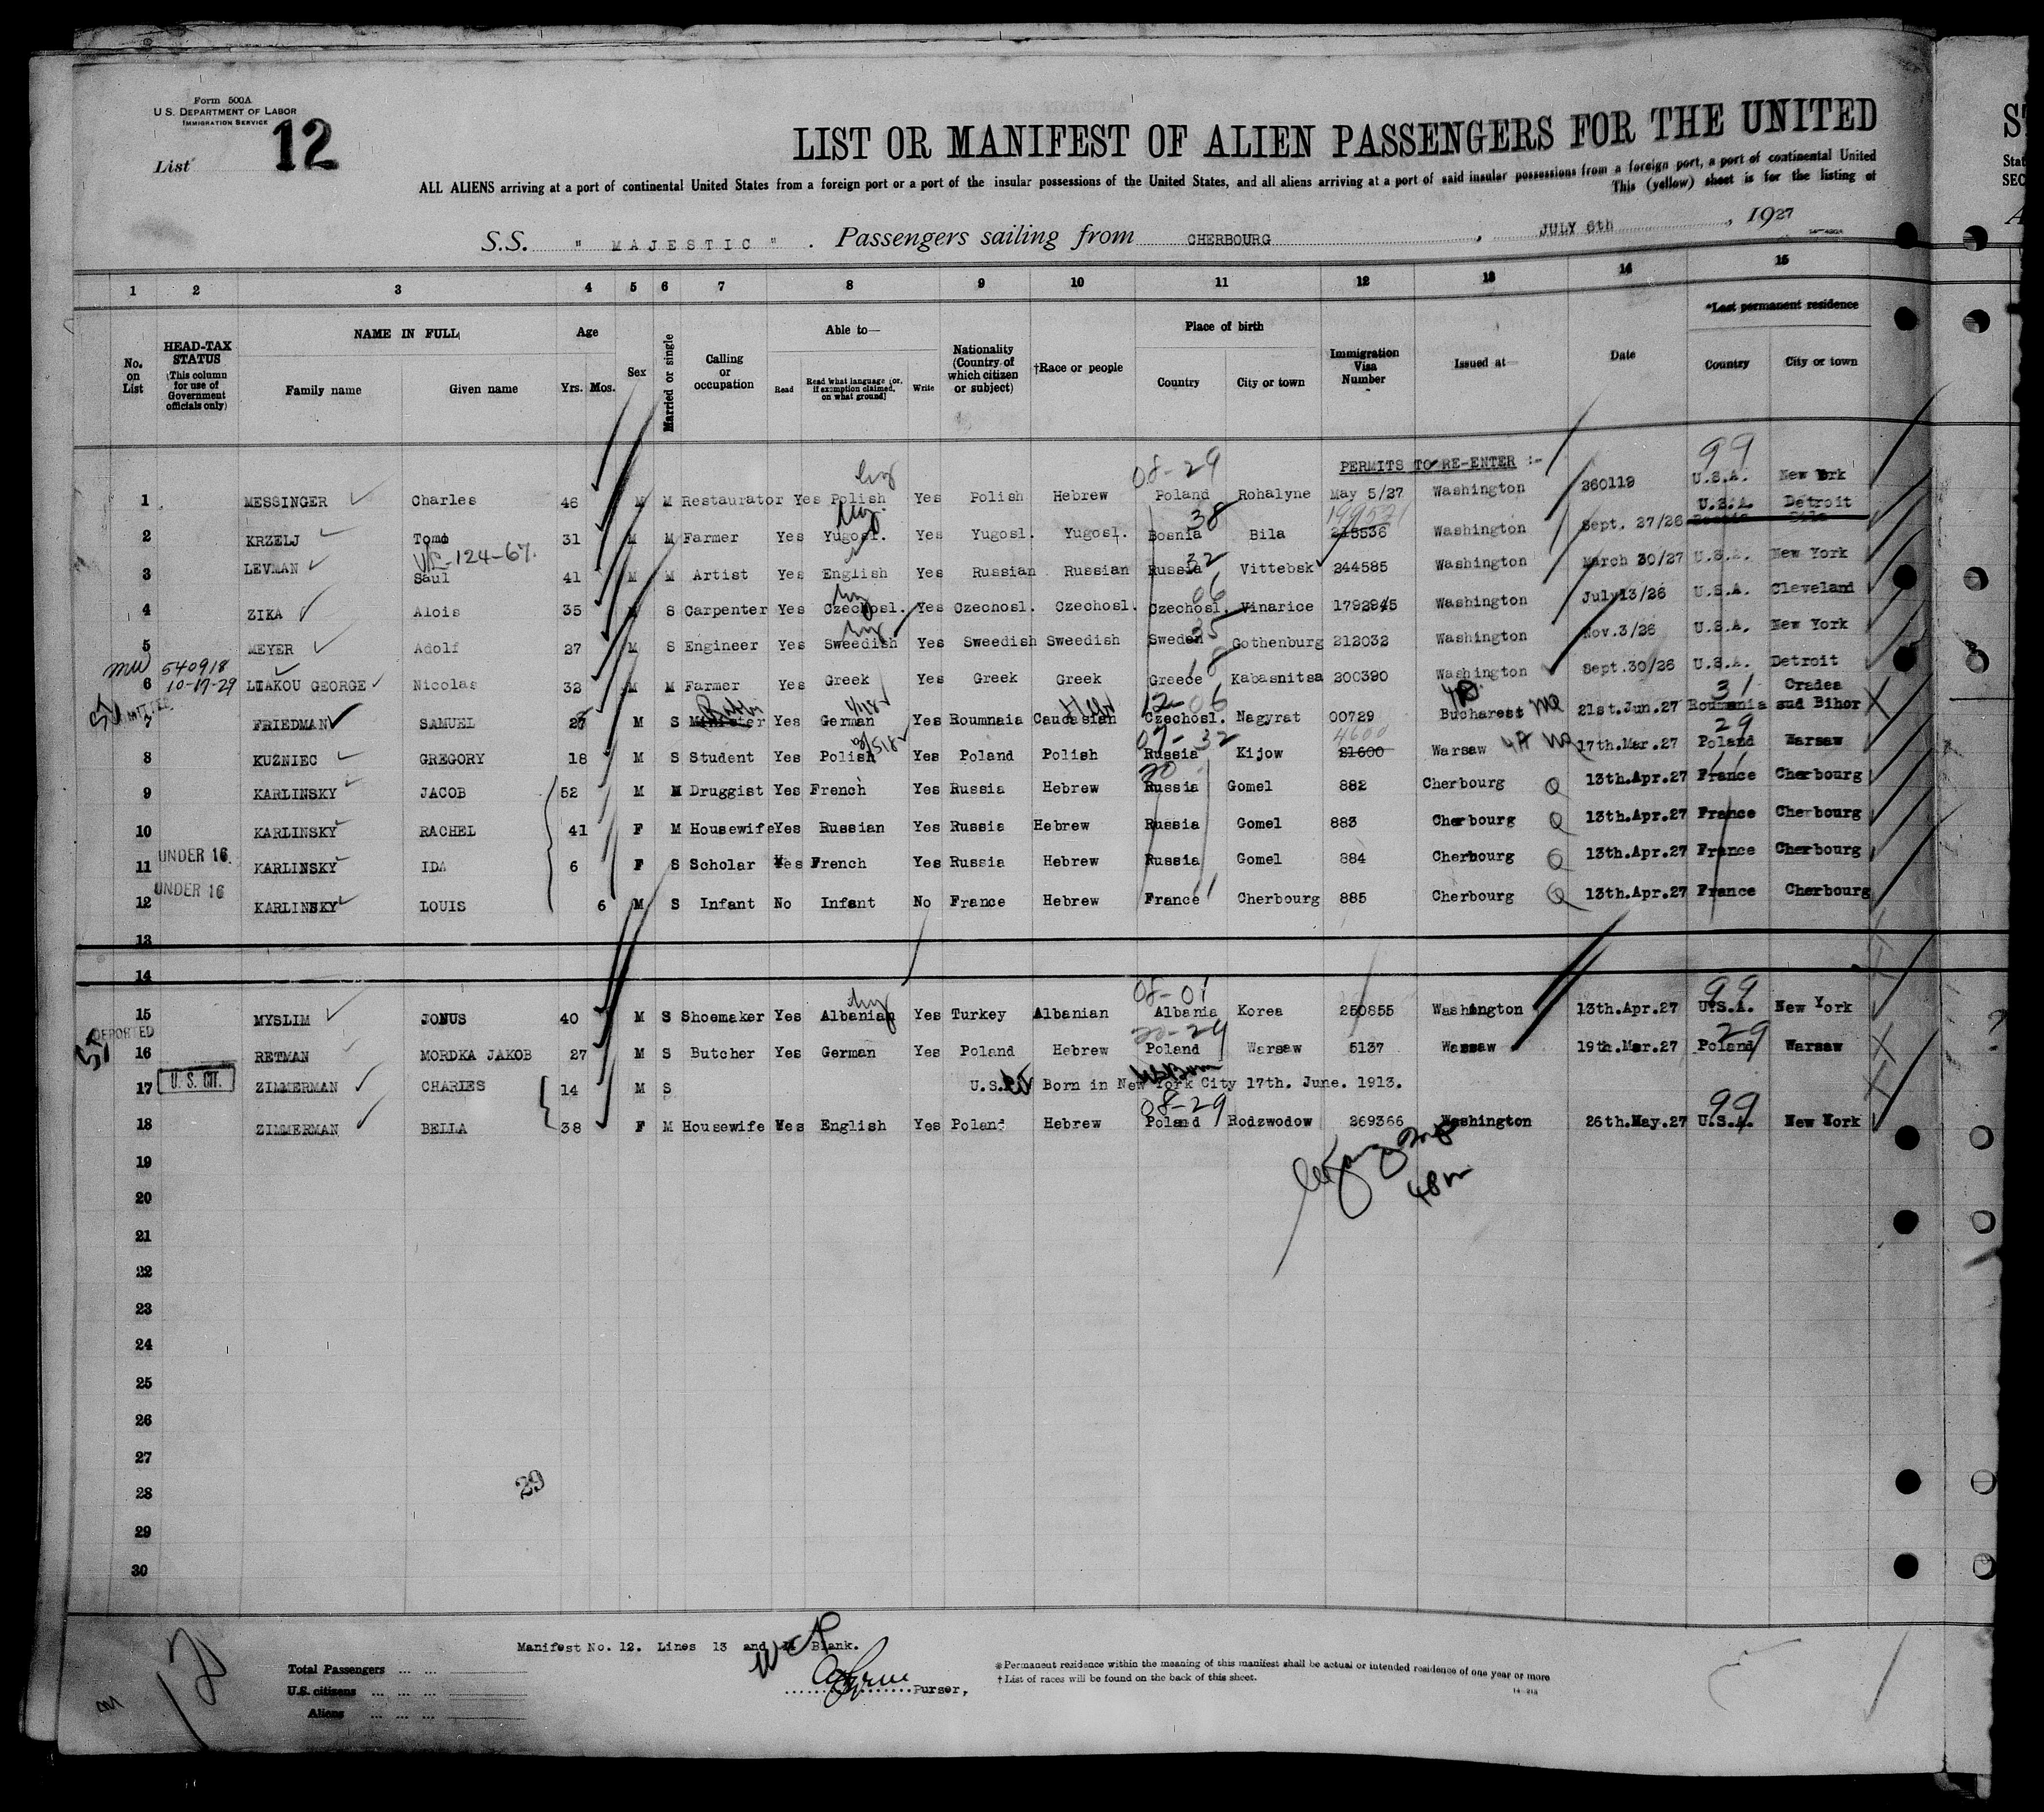 Form 500A
U. S. DEPARTMENT OF LABOR
IMMIGRATION SERVICE
List 12
LIST OR MANIFEST OF ALIEN PASSENGERS FOR THE UNITED
ALL ALIENS arriving at a port of continental United States from a foreign port or a port of the insular possessions of the United States, and all aliens arriving at a port of said insular possessions from a foreign port, a port of continental United
This (yellow) sheet is for the listing of
S.S. " MAJESTIC " . Passengers sailing from CHERBOURG , JULY 6th , 1927
1 2 3 4 5 6 7 8 9 10 11 12 13 14 15
No. on List
HEAD-TAX STATUS (This column for use of Government officials only)
NAME IN FULL
Family name Given name
Age
Yrs. Mos.
Sex
Married or single
Calling or occupation
Able to—
Read Read what language (or, if exemption claimed, on what ground) Write
Nationality (Country of which citizen or subject)
†Race or people
Place of birth
Country City or town
Immigration Visa Number
Issued at—
Date
*Last permanent residence
Country City or town
PERMITS TO RE-ENTER :-
08-29 99
1 MESSINGER Charles 46 M M Restaurator Yes Polish Yes Polish Hebrew Poland Rohalyne May 5/27 Washington 260119 U.S.A. New York
U.S.A. Detroit
38
2 KRZELJ Tomo 31 M M Farmer Yes Yugosl. Yes Yugosl. Yugosl. Bosnia Bila 215536 Washington Sept. 27/26
124-67
32
3 LEVMAN Saul 41 M M Artist Yes English Yes Russian Russian Russia Vittebsk 244585 Washington March 30/27 U.S.A. New York
06
4 ZIKA Alois 35 M S Carpenter Yes Czechosl. Yes Czechosl. Czechosl. Czechosl. Vinarice 1792945 Washington July13/26 U.S.A. Cleveland
35
5 MEYER Adolf 27 M S Engineer Yes Swedish Yes Sweedish Sweedish Sweden Gothenburg 212032 Washington Nov.3/26 U.S.A. New York
540918
10-17-29
6 LIAKOU GEORGE Nicolas 32 M M Farmer Yes Greek Yes Greek Greek Greece Kabasnitsa 200390 Washington Sept.30/26 U.S.A. Detroit
Hebr 12-06 31 Cradea
7 FRIEDMAN SAMUEL 27 M S Minister Yes German Yes Roumnaia Caucasian Czechosl. Nagyrat 00729 Bucharest 21st.Jun.27 Roumania sud Bihor
07-32 4600 29
8 KUZNIEC GREGORY 18 M S Student Yes Polish Yes Poland Polish Russia Kijow 21600 Warsaw 17th.Mar.27 Poland Warsaw
9 KARLINSKY JACOB 52 M M Druggist Yes French Yes Russia Hebrew Russia Gomel 882 Cherbourg 13th.Apr.27 France Cherbourg
10 KARLINSKY RACHEL 41 F M Housewife Yes Russian Yes Russia Hebrew Russia Gomel 883 Cherbourg 13th.Apr.27 France Cherbourg
UNDER 16
11 KARLINSKY IDA 6 F S Scholar Yes French Yes Russia Hebrew Russia Gomel 884 Cherbourg 13th.Apr.27 France Cherbourg
UNDER 16
12 KARLINSKY LOUIS 6 M S Infant No Infant No France Hebrew France Cherbourg 885 Cherbourg 13th.Apr.27 France Cherbourg
13
14
08-01 99
15 MYSLIM JONUS 40 M S Shoemaker Yes Albanian Yes Turkey Albanian Albania Korea 250855 Washington 13th.Apr.27 U.S.A. New York
DEPORTED
29
16 RETMAN MORDKA JAKOB 27 M S Butcher Yes German Yes Poland Hebrew Poland Warsaw 5137 Warsaw 19th.Mar.27 Poland Warsaw
U. S. CIT.
17 ZIMMERMAN CHARLES 14 M S U.S. Born in New York City 17th. June. 1913.
08-29 99
18 ZIMMERMAN BELLA 38 F M Housewife Yes English Yes Poland Hebrew Poland Rodzwodow 269366 Washington 26th.May.27 U.S.A. New York
19
20
21
22
23
24
25
26
27
28
29
30
29
Manifest No. 12. Lines 13 and 14 Blank.
Total Passengers
U.S. citizens
Aliens
Purser,
*Permanent residence within the meaning of this manifest shall be actual or intended residence of one year or more
† List of races will be found on the back of this sheet.
12